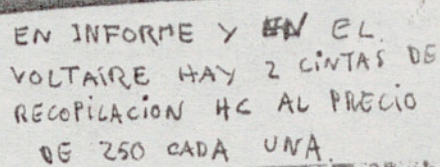 EN INFORME Y EN EL.
VOLTAIRE HAY 2 CINTAS DE
RECOPILACION HC AL PRECIO
DE 250 CADA UNA